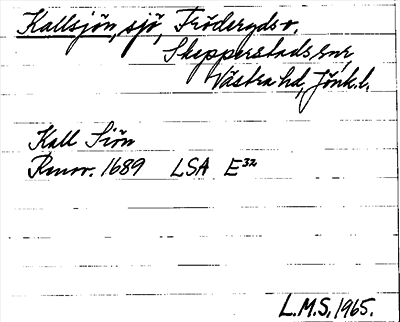 Kallsjön, sjö, Fröderyds o.
Skepperstads snr,
Västra hd, Jönk. l.
Kall Siön
Renov. 1689 LSA E³²
L.M.S. 1965.